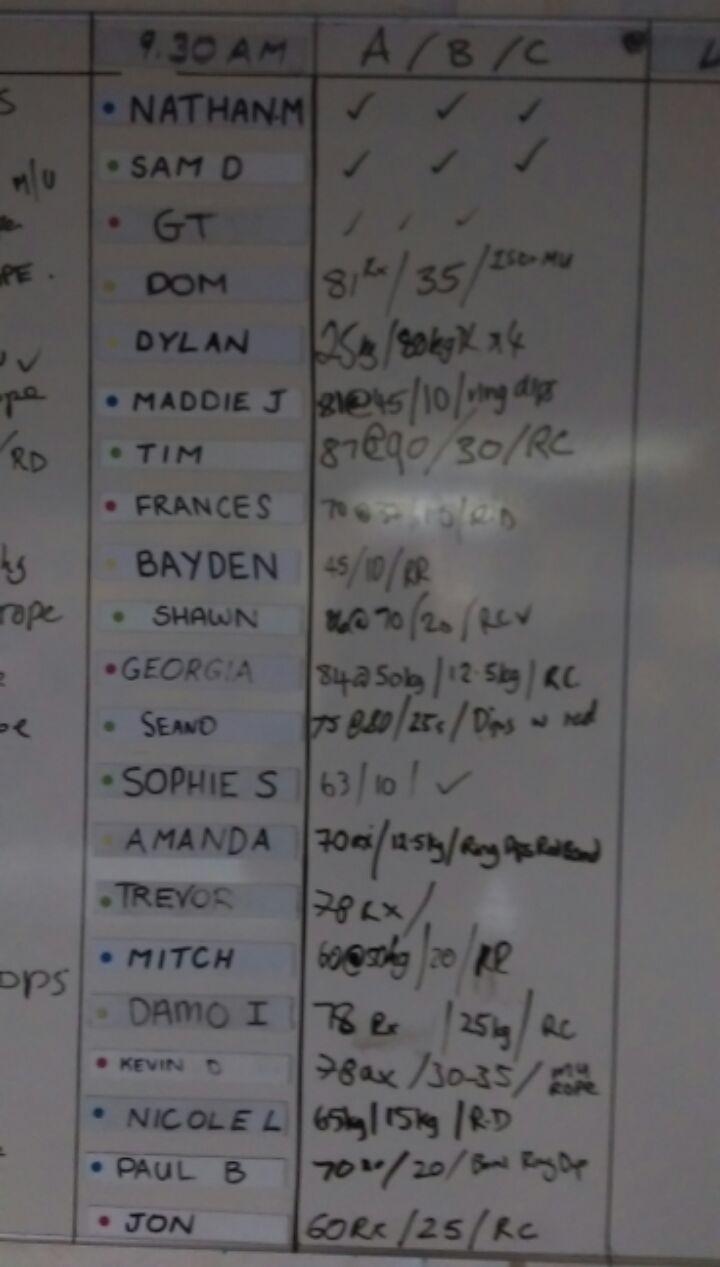 9.30 AM A / B / C
S • NATHAN.M ✓ ✓ ✓
M/U • SAM D ✓ ✓ ✓
• GT / / ✓
PE. • DOM 81 Rx / 35 /
✓ • DYLAN 25kg / 80kg x 4
ope • MADDIE J 81@45 / 10 / ring dips
/RD • TIM 87@90 / 30 / RC
• FRANCES 70 @ / R.D
• BAYDEN 45 / 10 / RR
rope • SHAWN @ 70 / 20 / RC ✓
• GEORGIA 84@50kg / 12.5kg / RC
• SEANO 75 @ / 25 / Dips w red
• SOPHIE S 63 / 10 / ✓
• AMANDA 70 / 12.5kg / Ring Dips Red Band
• TREVOR 78 Rx /
ops • MITCH 60@50kg / 20 / RR
• DAMO I 78 Rx / 25kg / RC
• KEVIN D 78 / 30-35 / MU ROPE
• NICOLE L 65kg / 15kg / R.D
• PAUL B 70 / 20 / Ring Dip
• JON 60 Rx / 25 / RC